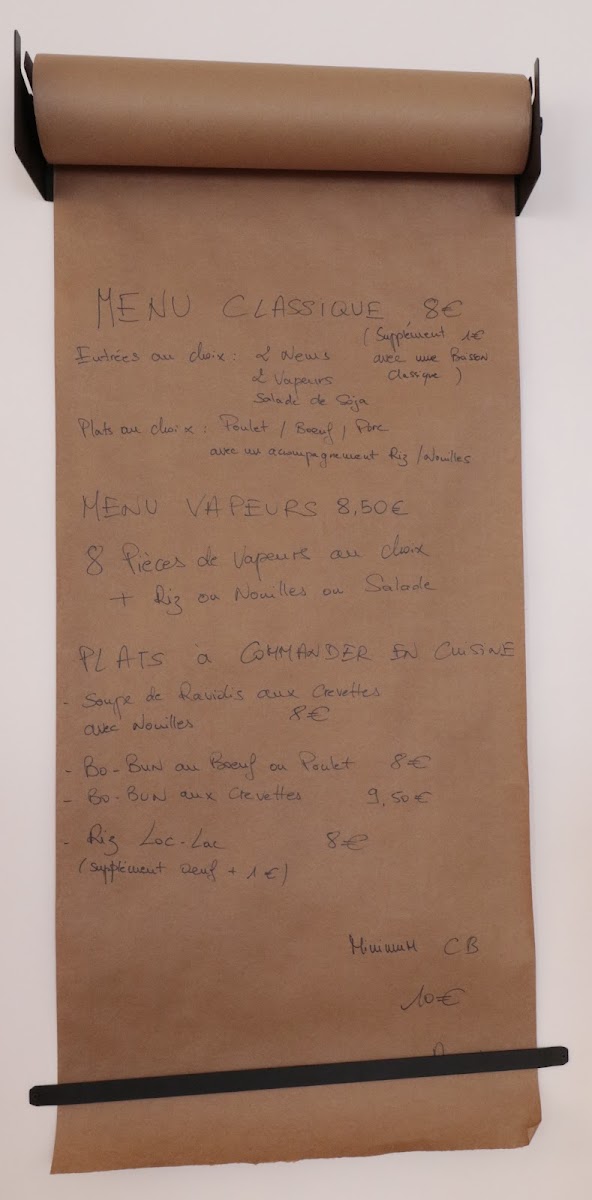 MENU CLASSIQUE 8€
(Supplément 1€
avec une Boisson
Classique)
Entrées au choix : 2 Nems
2 Vapeurs
Salade de Soja
Plats au choix : Poulet / Boeuf / Porc
avec un acompagnement Riz / Nouilles
MENU VAPEURS 8,50€
8 Pièces de Vapeurs au choix
+ Riz ou Nouilles ou Salade
PLATS à COMMANDER EN CUISINE
- Soupe de Raviolis aux Crevettes
avec Nouilles 8€
- Bo-Bun au Boeuf ou Poulet 8€
- Bo-Bun aux Crevettes 9,50€
- Riz Loc-Lac 8€
(supplément oeuf + 1€)
Minimum CB
10€